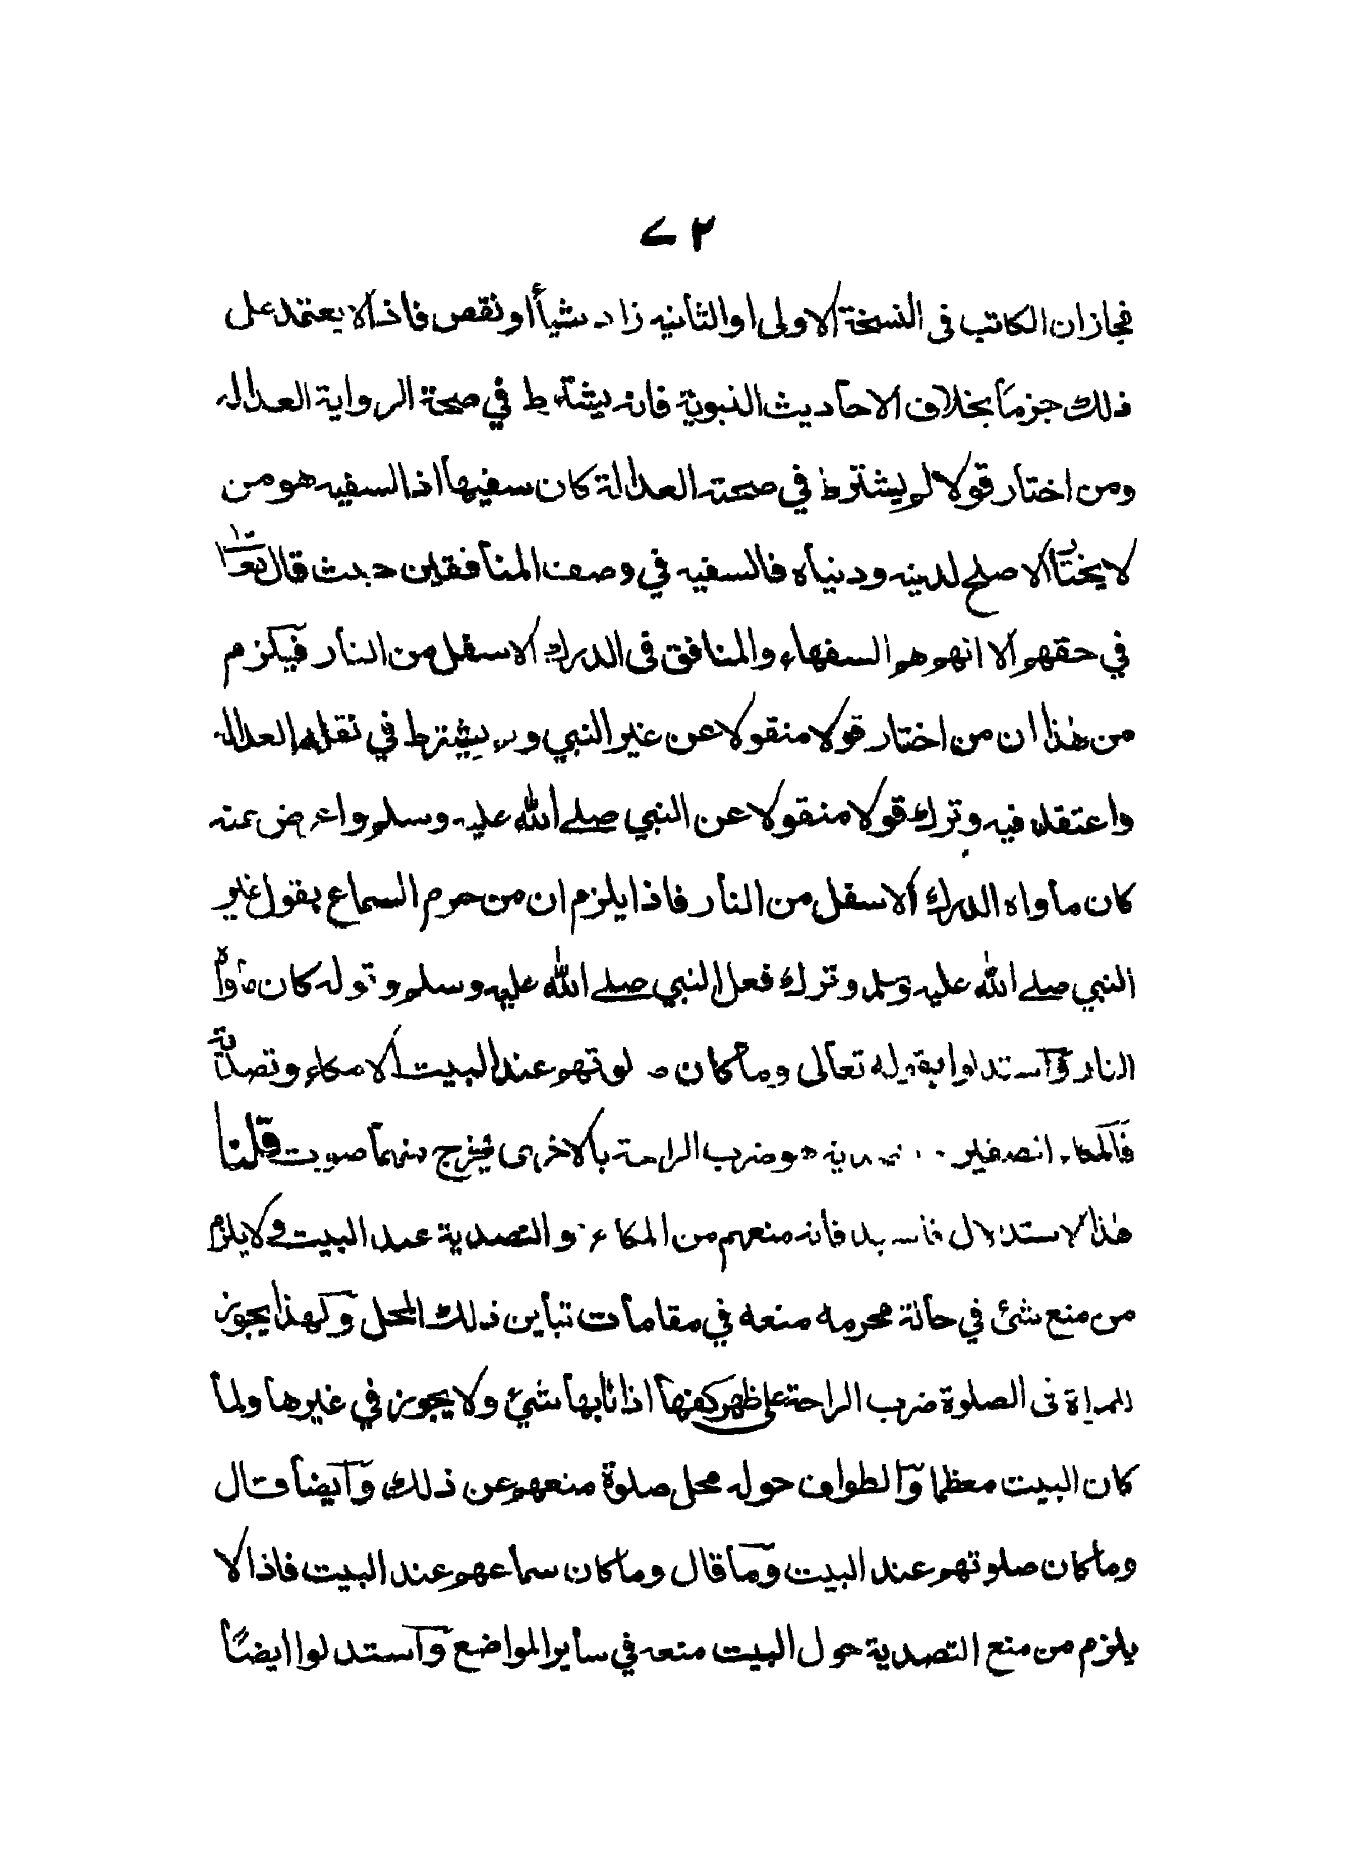 ٧٢
فجازان الكاتب فى النسخة الاولى اوالثانيه زاد شيأ اونقص فاذالايعتمد على
ذلك جزما بخلاف الاحاديث النبوية فانه يشترط في صحة الرواية العداله
ومن اختار قولا لم يشترط في صحته العدالة كان سفيها اذا السفيه هو من
لايختاالاصلح لدينه ودنياه فالسفيه في وصف المنافقين حيث قال تعا
في حقهم الا انهم هم السفهاء والمنافق فى الدرك الاسفل من النار فيكزم
من هذا ان من اختار قولا منقولا عن غير النبي و يشترط في نقله العداله
واعتقد فيه وترك قولا منقولا عن النبي صلے الله عليه وسلم واعرض عنه
كان ماواه الدرك الاسفل من النار فاذا يلزم ان من حرم السماع بقول غير
النبي صلے الله عليه وسلم وترك فعل النبي صلے الله عليه وسلم وقوله كان ماواه
النار واستدلوا بقوله تعالى وما كان صلوتهم عند البيت الا مكاء وتصدية
فالمكاء الصفير هو ضرب الراحة بالاخرى فيخرج منهما صويت قلنا
هذا الاستدلال فاسد فانه منعهم من المكاء والتصدية عند البيت ولايلزم
من منع شئ في حالة محرمه منعه في مقامات تباين ذلك المحل ولهذا يجوز
للمراة فى الصلوة ضرب الراحة على ظهر كفها اذا نابها شئ ولا يجوز في غيرها ولما
كان البيت معظما والطواف حوله محل صلوة منعهم عن ذلك وايضا قال
وما كان صلوتهم عند البيت وما قال وما كان سماعهم عند البيت فاذا لا
يلزم من منع التصدية حول البيت منعه في ساير المواضع واستدلوا ايضا